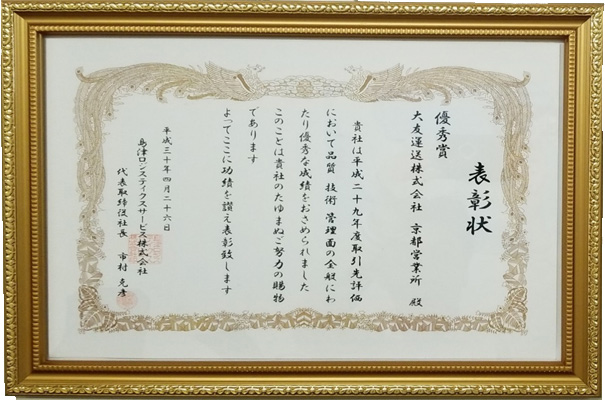 表彰状
優秀賞
大友運送株式会社 京都営業所 殿
貴社は平成二十九年度取引先評価
において品質 技術 管理面の全般にわ
たり優秀な成績をおさめられました
このことは貴社のたゆまぬご努力の賜物
であります
よってここに功績を讃え表彰致します
平成三十年四月二十六日
島津ロジスティクスサービス株式会社
代表取締役社長 市村 克彦